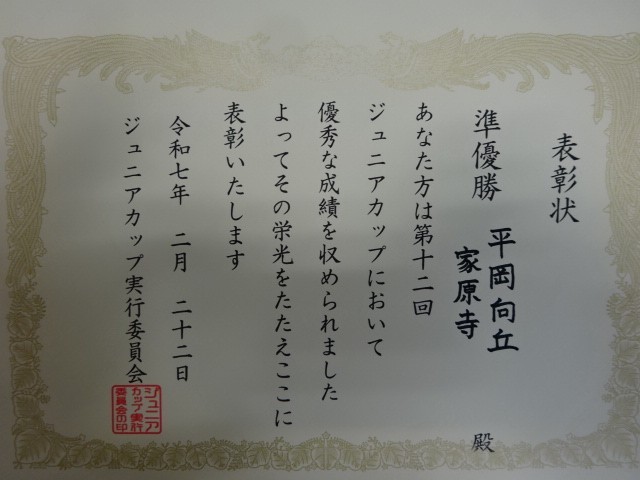 表彰状
準優勝
平岡向丘
家原寺
殿
あなた方は第十二回
ジュニアカップにおいて
優秀な成績を収められました
よってその栄光をたたえここに
表彰いたします
令和七年 二月 二十二日
ジュニアカップ実行委員会
ジュニア
カップ実行
委員会の印